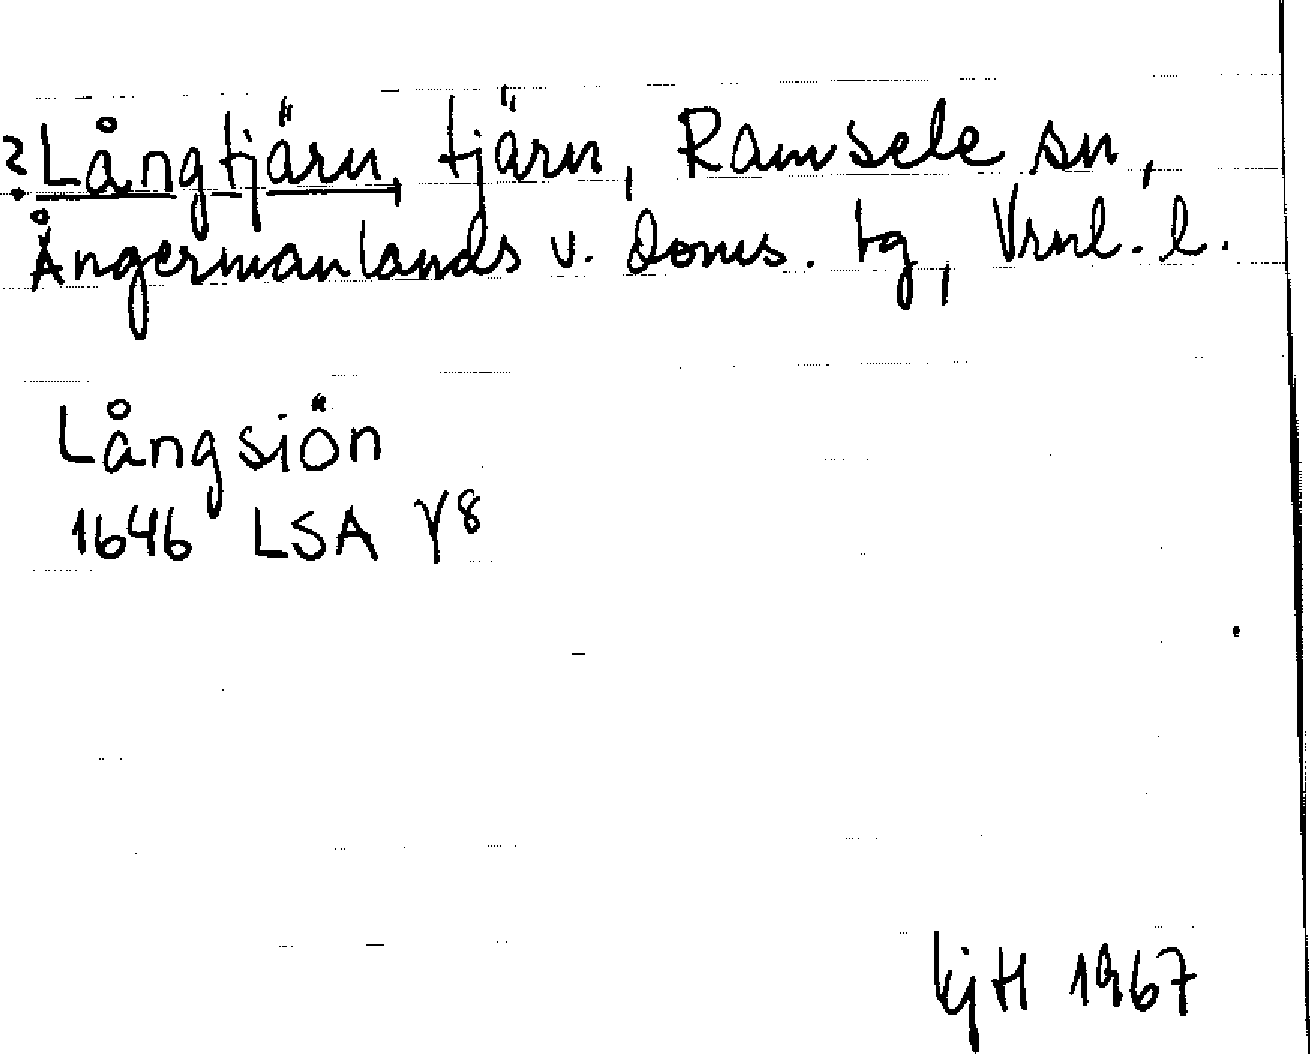 ? Långtjärn, tjärn, Ramsele sn,
Ångermanlands v. doms. tg, Vrnl. l.
Långsiön
1646 LSA Y8
KjH 1967